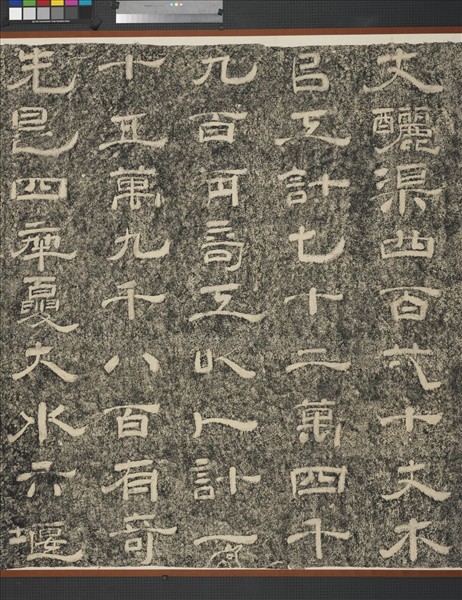 丈釃渠四百弌十丈木
㠯工計七十二萬四千
九百有奇工以人計一
十五萬九千八百有奇
先是四年夏大水六堰